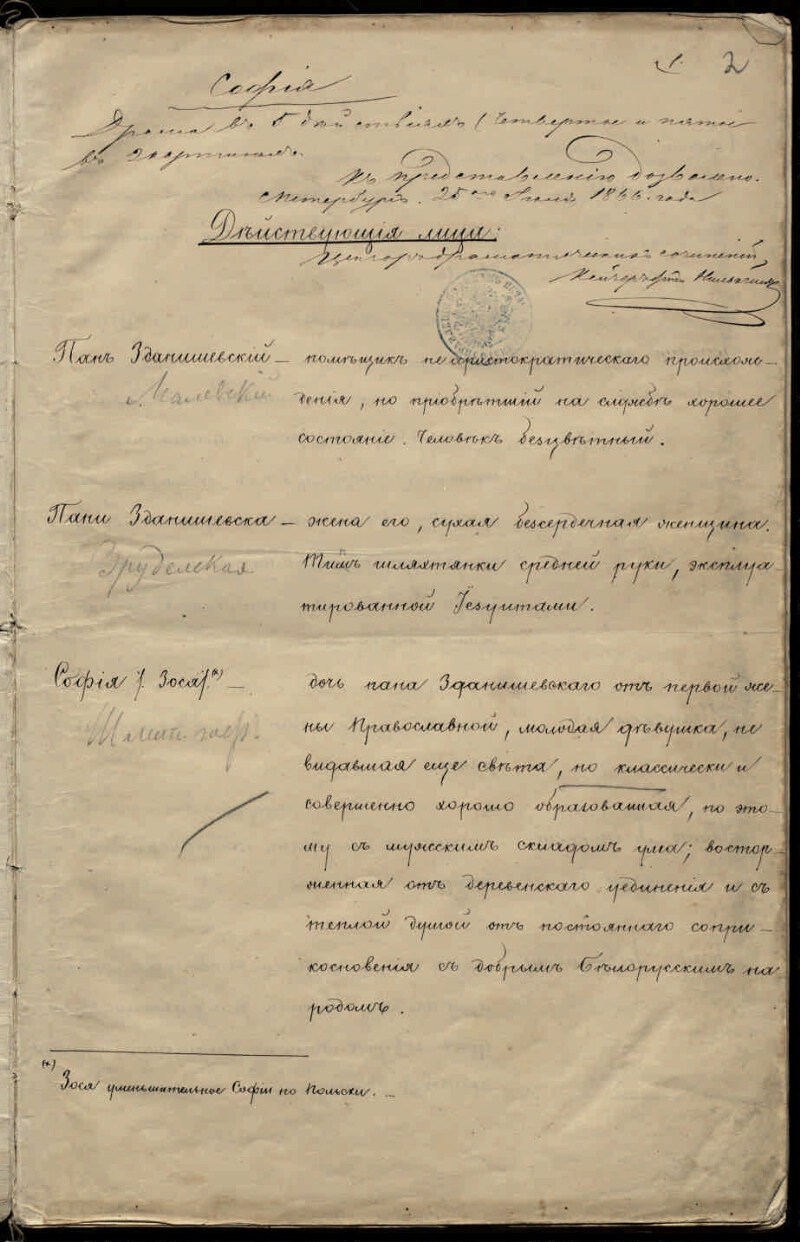 2
Софія
Драма въ 5 дѣйствіяхъ (Четвертое и пятое
въ 2 картинахъ.
Къ представленію дозволено.
С.Петербургъ. 25го 1866 года
Дѣйствующія лица:
Цензоръ драматическихъ сочиненій
Панъ Зданишевскій — помѣщикъ не аристократическаго происхож-
Малевскій
денія, но пріобрѣтшій на службѣ хорошее
состояніе. Человѣкъ безцвѣтный.
Пани Зданишевска — жена его, сухая безсердечная женщина.
Типъ шляхтянки средней руки, эксплуа
тированной Іезуитами.
Софія /. Зося /.*) — дочь пана Зданишевскаго отъ первой же-
ны Православной, молодая дѣвушка, не
видавшая еще свѣта, но классически и
совершенно хорошо образованная, по это-
му съ мужскимъ складомъ ума; востор-
женная отъ деревенскаго уединенія и съ
теплой душой отъ постояннаго сопри-
косновенія съ добрымъ Бѣлорусскимъ на
родомъ.
*)
Зося уменьшительное Софіи по Польски. —